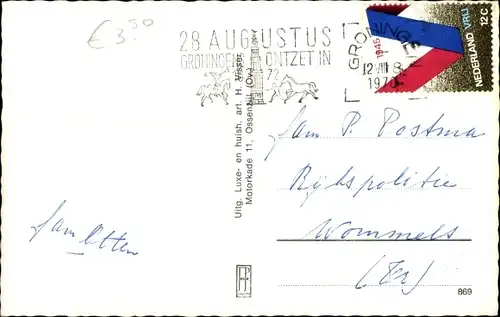 €3,50
28 AUGUSTUS
GRONINGEN ONTZET IN
72
GRONINGEN
12 VIII 8
197
1945
NEDERLAND VRIJ
12C
Uitg. Luxe- en huish. art. H. Visser
Motorkade 11, Ossenzijl (Ov.)
fam P. Postma
Rijkspolitie
Wommels
(Fr)
fam Otten
869